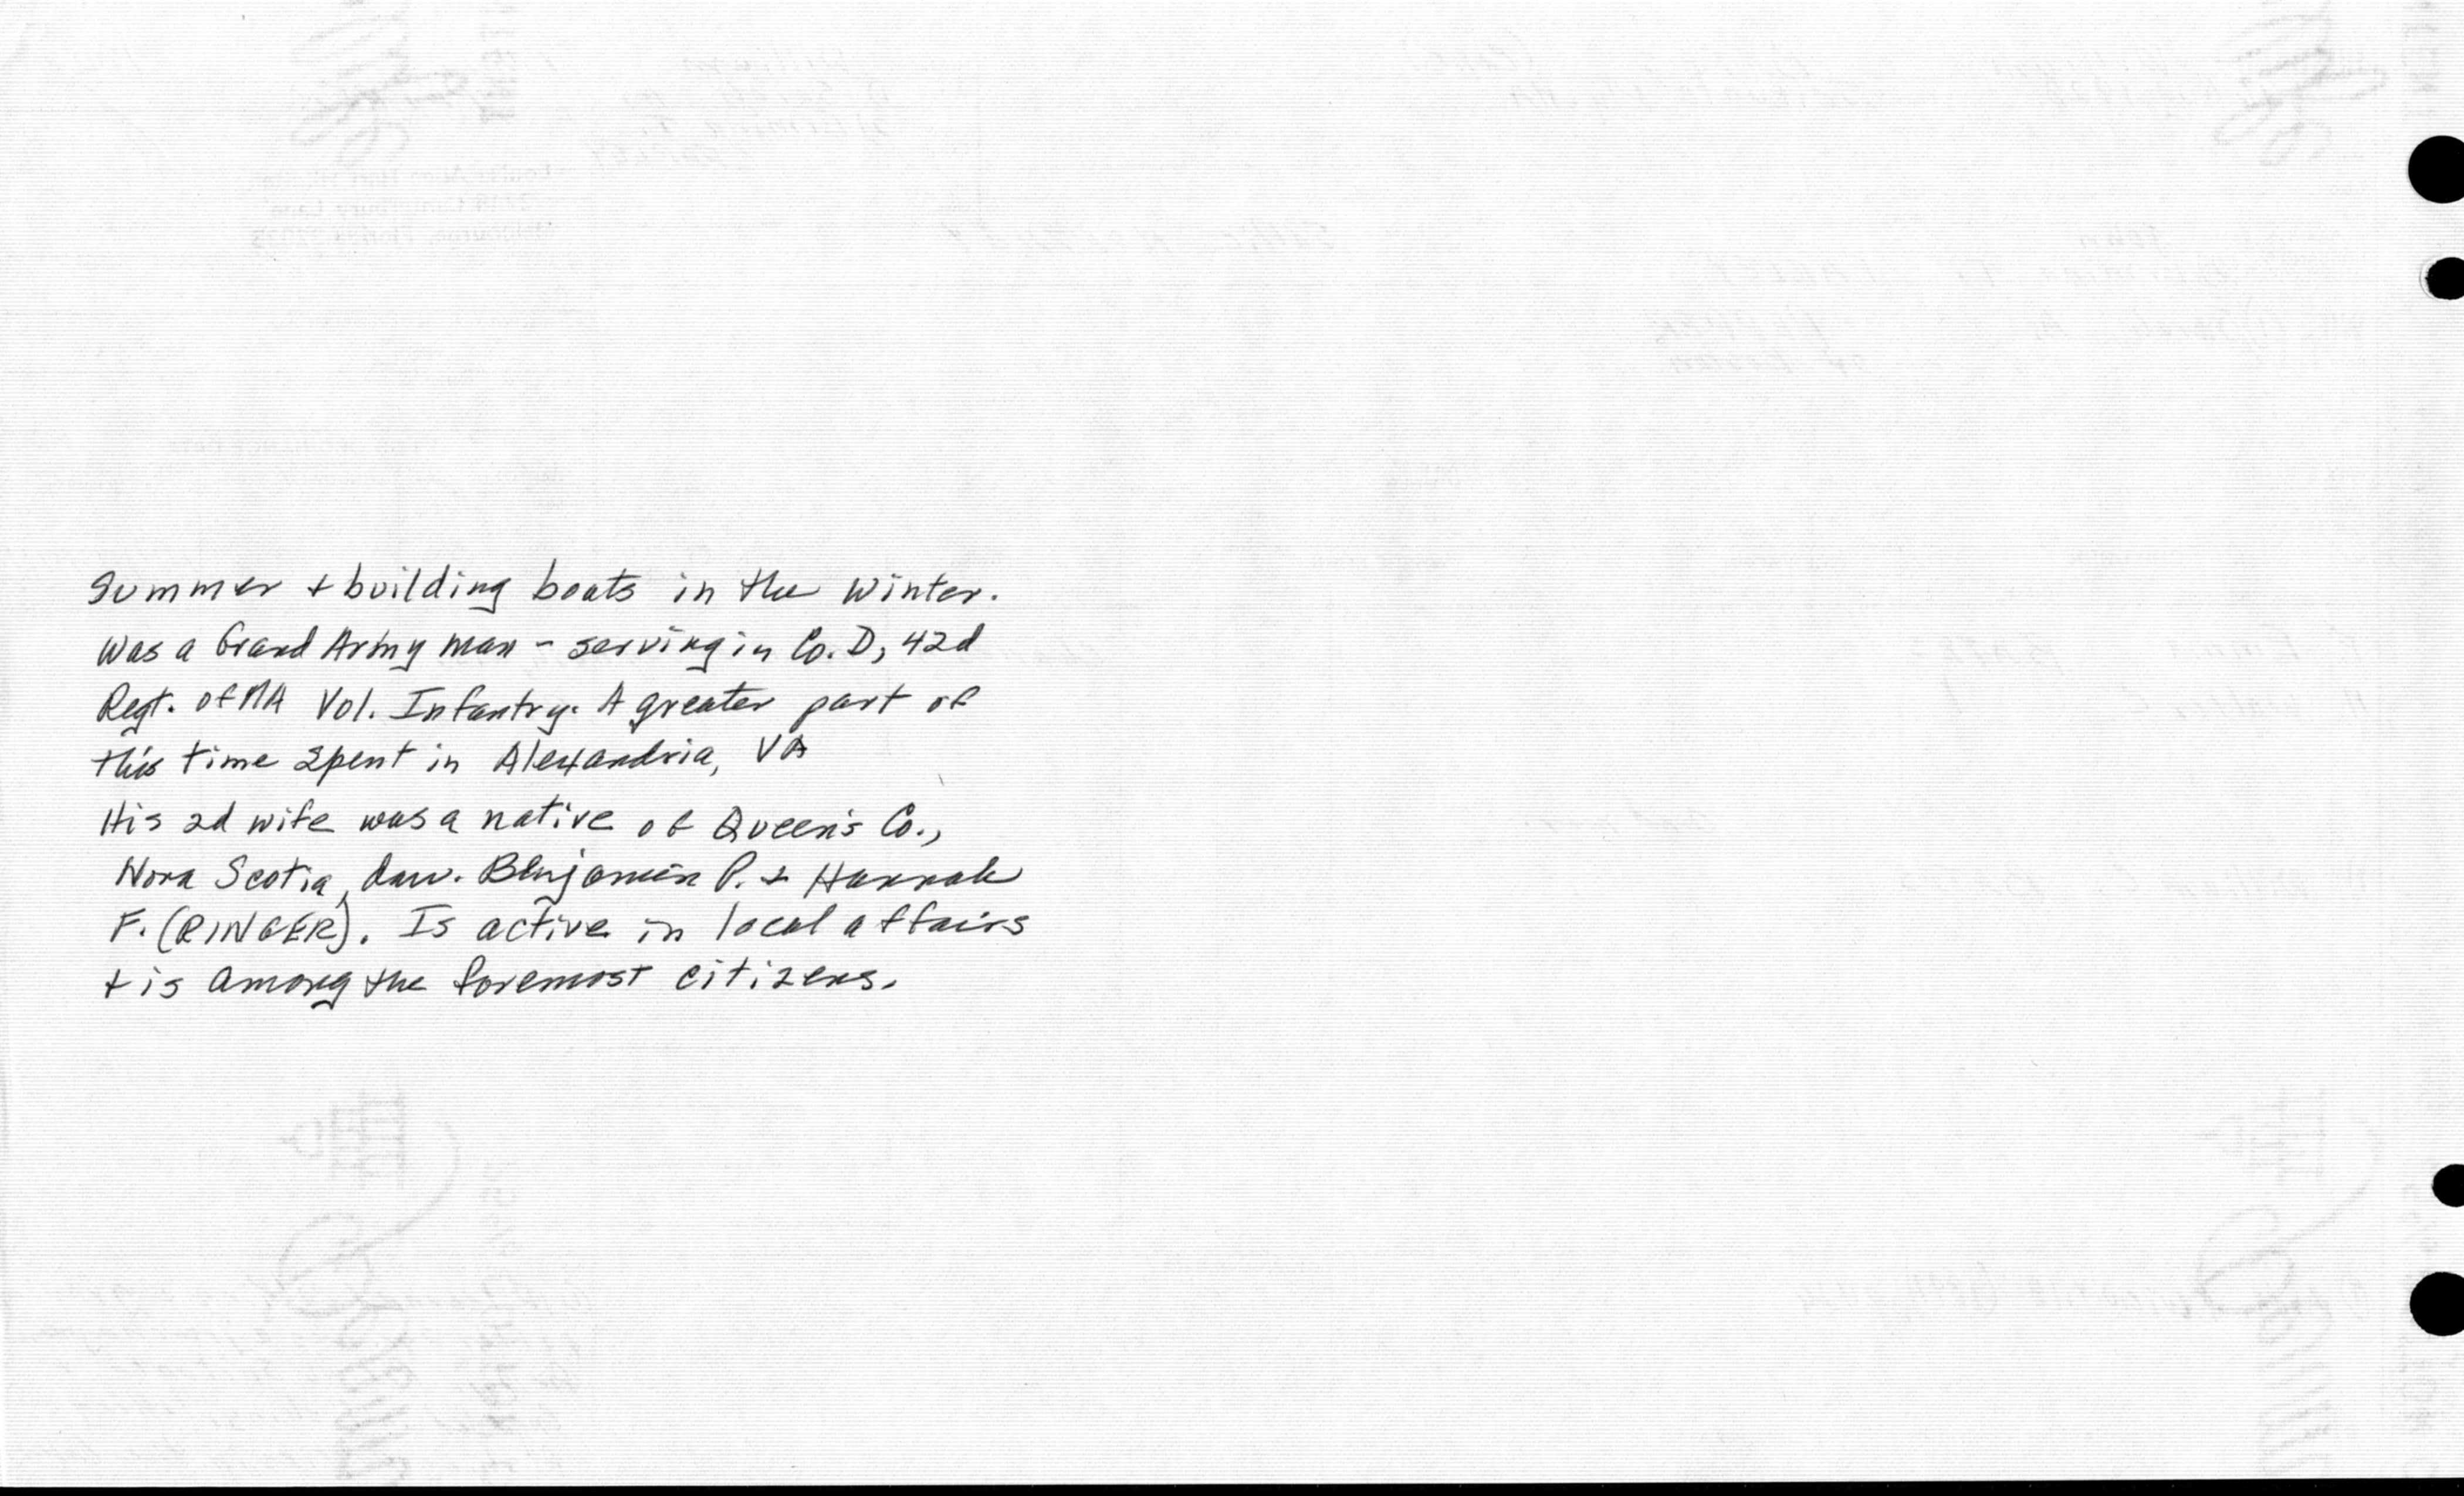 Summer + building boats in the winter.
Was a Grand Army man - serving in Co. D, 42d
Regt. of MA Vol. Infantry. A greater part of
this time spent in Alexandria, VA
His 2d wife was a native of Queen's Co.,
Nova Scotia, dau. Benjamin P. + Hannah
F. (RINGER). Is active in local affairs
+ is among the foremost citizens.